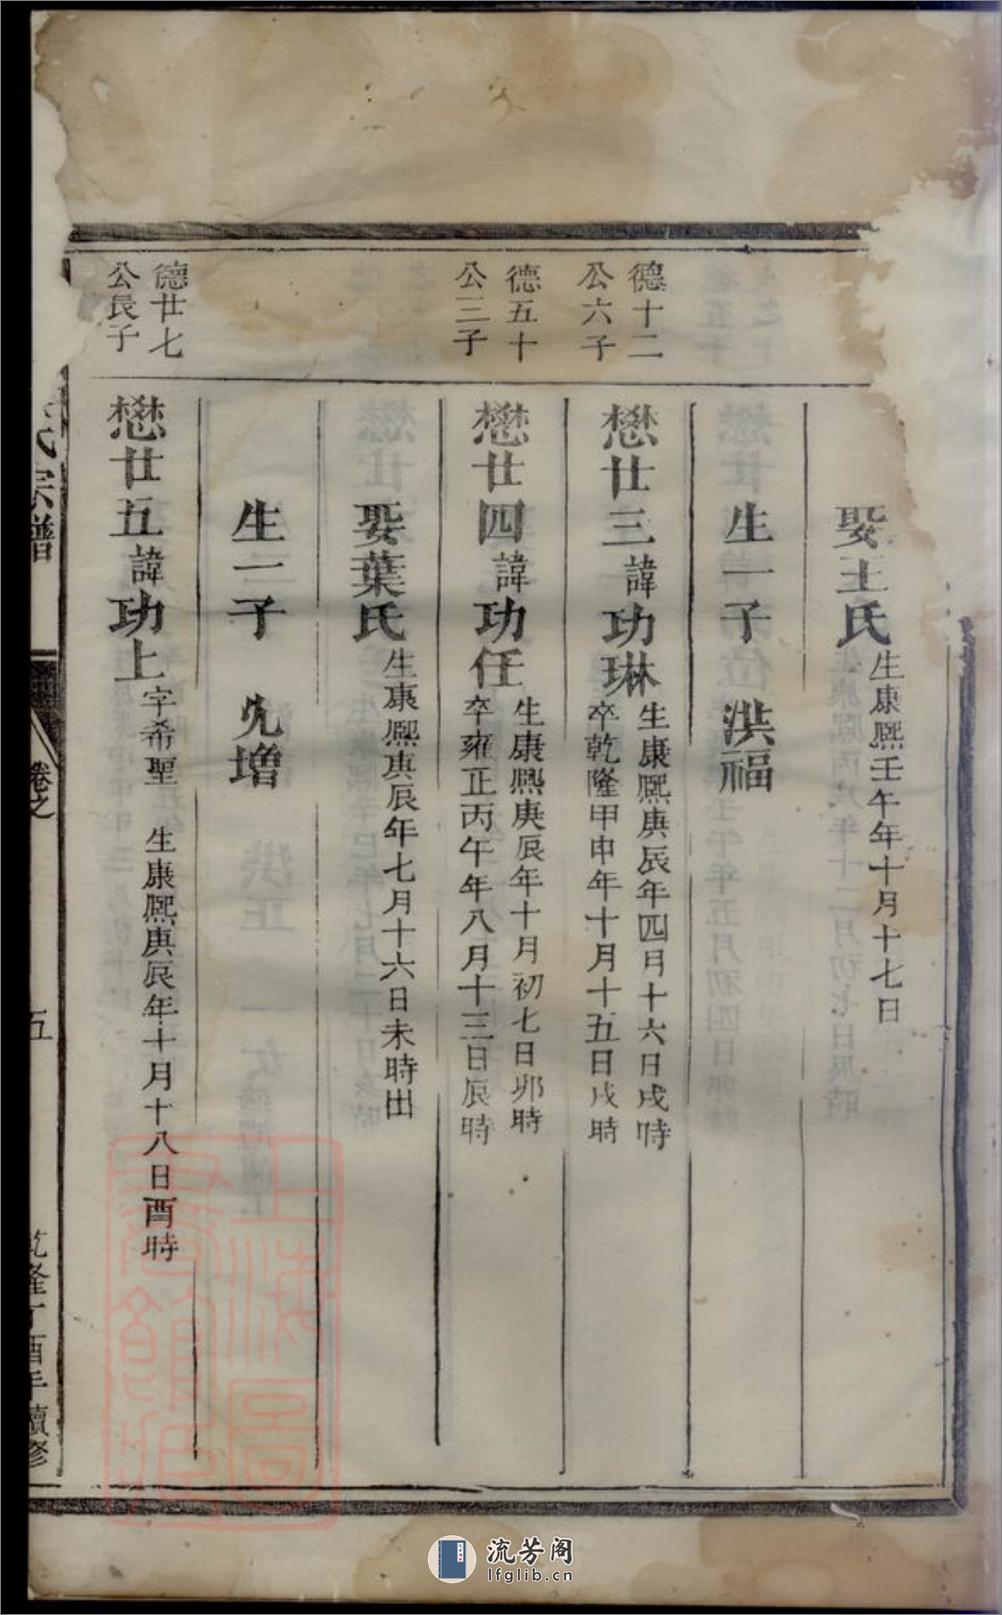 娶王氏生康熙壬午年十月十七日
生一子 洪福
德十二
公六子
懋廿三諱功琳
生康熙庚辰年四月十六日戌時
卒乾隆甲申年十月十五日戌時
德五十
公三子
懋廿四諱功任
生康熙庚辰年十月初七日卯時
卒雍正丙午年八月十三日辰時
娶葉氏生康熙庚辰年七月十六日未時出
生一子 先增
德廿七
公長子
懋廿五諱功上字希聖 生康熙庚辰年十月十八日酉時
氏宗譜
卷之
五
乾隆丁酉年續修
上海圖書館藏
流芳阁
lfglib.cn